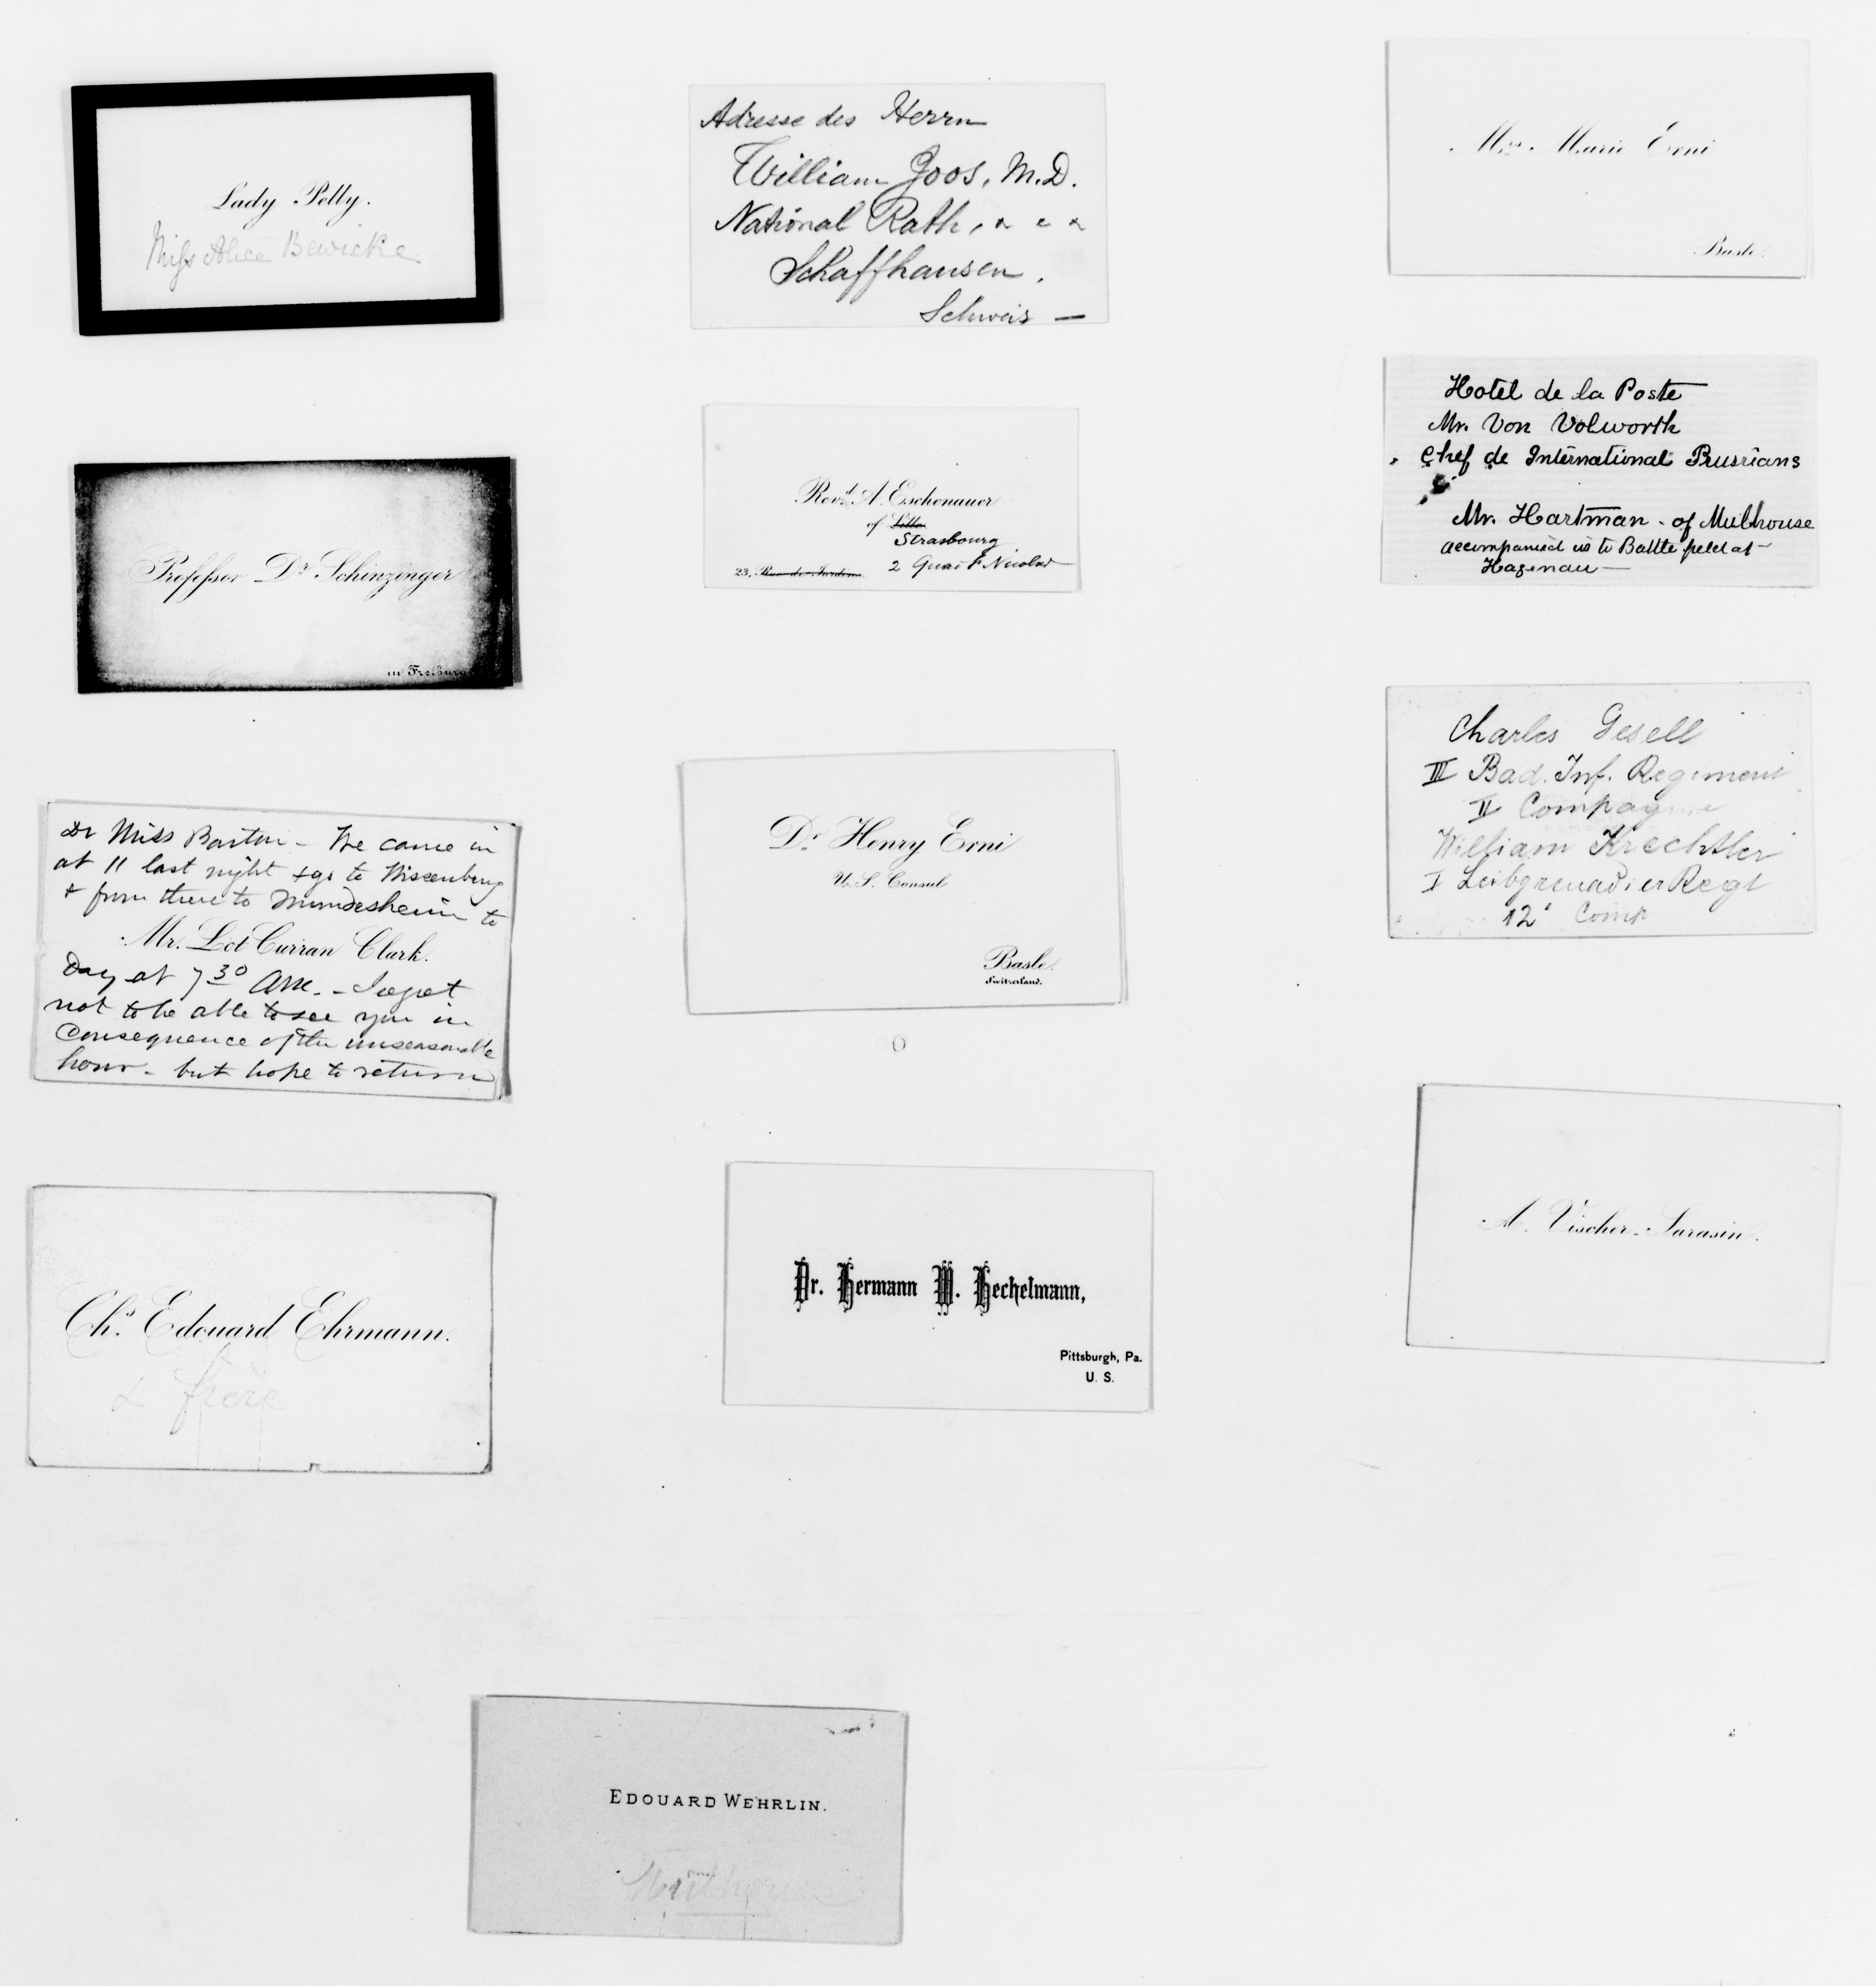 Lady Pelly.
Miss Alice Bewicke
Professor Dr Schinzinger
in Freiburg
Dr Miss Barton - We came in
at 11 last night & go to Wissenburg
& from there to to
Mr. Lot Curran Clark.
Day at 7 30 AM. - regret
not to be able to see you in
Consequence of the unseasonable
hour - but hope to return
Chs. Edouard Ehrmann.
& frere
Adresse des Herrn
William Joos, M.D.
National Rath,
Schaffhausen.
Schweis -
Revd. A. Eschenauer
of
Strasbourg
23, 2 Quai St Nicolas
Dr. Henry Erni
U. S. Consul
Basle.
Switzerland.
Dr. Hermann W. Hechelmann,
Pittsburgh, Pa.
U. S.
Mrs. Marie Erni
Basle.
Hotel de la Poste
Mr. Von Volworth
Chef de International Prussians
Mr. Hartman - of Mulhouse
accompanied us to Battle field at -
Hagenau -
Charles Gesell
III Bad. Inf. Regiment
II Compagnie
William Krechtler
I Leibgrenadier Regt
12' Comp
A. Vischer-Sarasin.
EDOUARD WEHRLIN.
Mulhouse